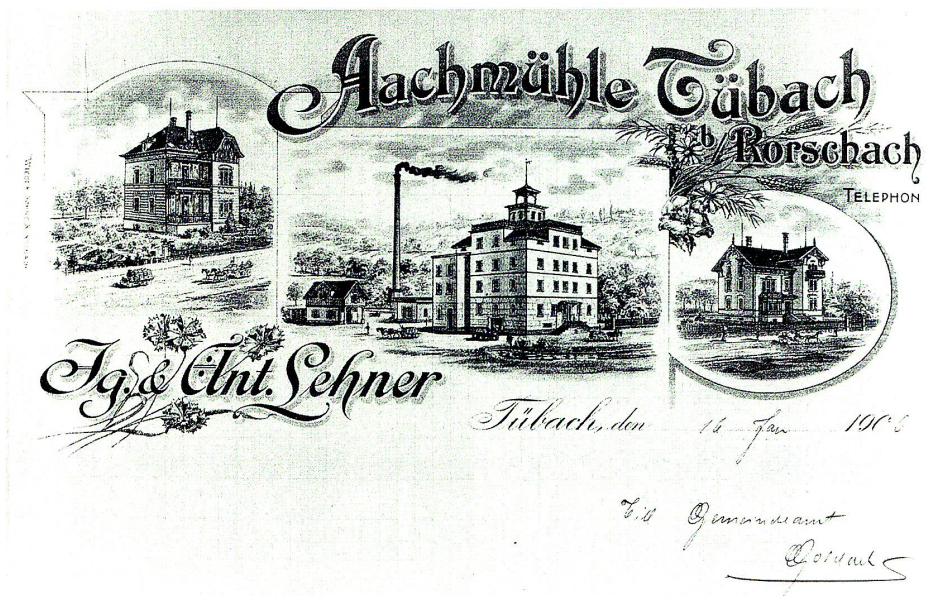 Aachmühle Tübach
b Rorschach
TELEPHON
Ig. & Ant. Lehner
Tübach, den 16 Jan 1906
Gemeindeamt